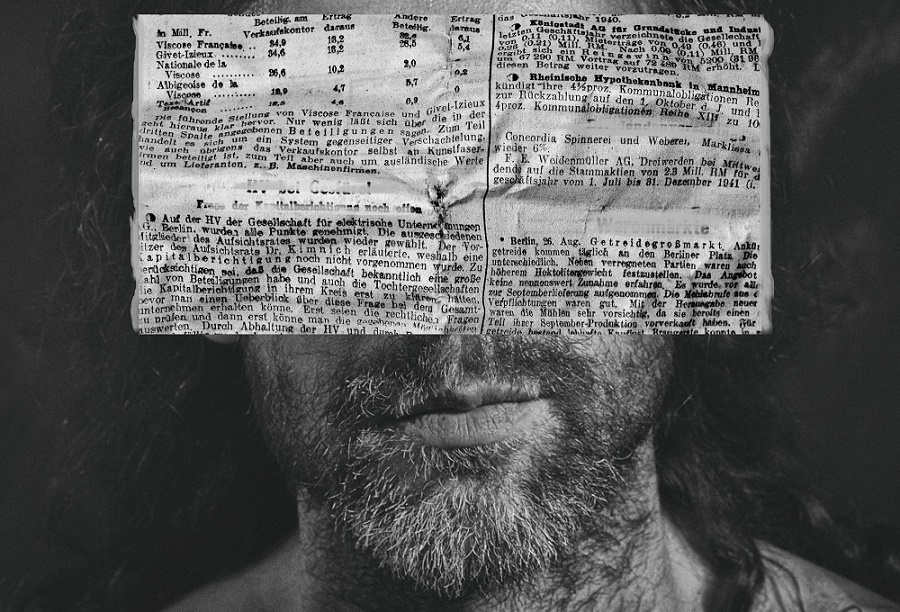 Beteilig. am Ertrag Andere Ertrag
in Mill. Fr. Verkaufskontor daraus Beteilig. daraus
Viscose Française . . 34,9 16,2 6,1
Givet-Izieux . . . . 34,6 16,2 26,5 5,4
Nationale de la
Viscose . . . . . 26,6 10,2 2,0 0,2
Albigeoise de la
Viscose . . . . 18,9 4,7 5,7 0
0,9 0
Die führende Stellung von Viscose Francaise und Givet-Izieux
geht hieraus klar hervor. Nur wenig läßt sich über die in der
dritten Spalte angegebenen Beteiligungen sagen. Zum Teil
handelt es sich um ein System gegenseitiger Verschachtelung,
wie auch übrigens das Verkaufskontor selbst an Kunstfaser-
firmen beteiligt ist, zum Teil aber auch um ausländische Werte
und um Lieferanten, z. B. Maschinenfirmen.
HV bei
Frage der Kapitalberichtigung noch offen
Auf der HV der Gesellschaft für elektrische Unternehmungen
G., Berlin, wurden alle Punkte genehmigt. Die ausgeschiedenen
Mitglieder des Aufsichtsrates wurden wieder gewählt. Der Vor-
sitzer des Aufsichtsrats Dr. Kimnich erläuterte, weshalb eine
Kapitalberichtigung noch nicht vorgenommen wurde. Zu
berücksichtigen sei, daß die Gesellschaft bekanntlich eine große
Zahl von Beteiligungen habe und auch die Tochtergesellschaften
die Kapitalberichtigung in ihrem Kreis erst zu klären hätten,
bevor man einen Ueberblick über diese Frage bei dem Gesamt-
unternehmen erhalten könne. Erst seien die rechtlichen Fragen
zu prüfen und dann erst könne man die gegebenen Mög
auswerten. Durch Abhaltung der HV und durch
das Geschäftsjahr 1940.
Königstadt AG für Grundstücke und Indust
letzten Geschäftsjahr verzeichnete die Gesellschaft
von 0,11 (0,11), Mieterträge von 0,49 (0,46) und
0,26 (0,21) Mill. RM. Nach 0,06 (0,11) Mill. RM
ergibt sich ein Reingewinn von 5200 (31 96
um 67 290 RM Vortrag auf 72 489 RM erhöht. I.
diesen Betrag weiter vorzutragen.
Rheinische Hypothekenbank in Mannheim
kündigt ihre 4½proz. Kommunalobligationen Re
zur Rückzahlung auf den 1. Oktober d. J. und
4proz. Kommunalobligationen Reihe XIII zu 10
Concordia Spinnerei und Weberei, Marklissa
wieder 6%.
F. E. Weidenmüller AG, Dreiwerden bei Mittwei
dende auf die Stammaktien von 2,3 Mill. RM für d
geschäftsjahr vom 1. Juli bis 31. Dezember 1941 (i.
Warenmärkte
Berlin, 26. Aug. Getreidegroßmarkt. Ankü
getreide kommen täglich an den Berliner Platz. Die
unterschiedlich. Neben verregneten Partien waren auch
höherem Hektolitergewicht festzustellen. Das Angebot
keine nennenswert Zunahme erfahren. Es wurde vor all
zur Septemberlieferung aufgenommen. Die Mehlabrufe aus
Verpflichtungen waren gut. Mit der Hereingabe neuer
waren die Mühlen sehr vorsichtig, da sie bereits einen
Teil ihrer September-Produktion vorverkauft haben. Für